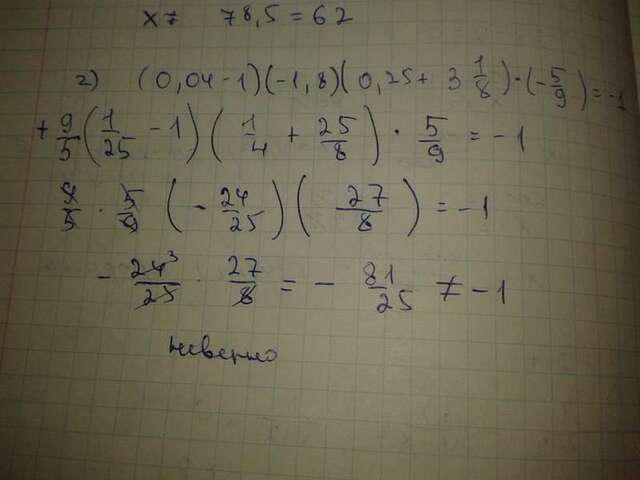 x = 78,5 = 62
2) (0,04 - 1)(-1,8)(0,25 + 3 1/8) · (-5/9) = -1
+ 9/5 (1/25 - 1)(1/4 + 25/8) · 5/9 = -1
9/5 · 5/9 (-24/25)(27/8) = -1
- 24³/25 · 27/8 = - 81/25 ≠ -1
неверно